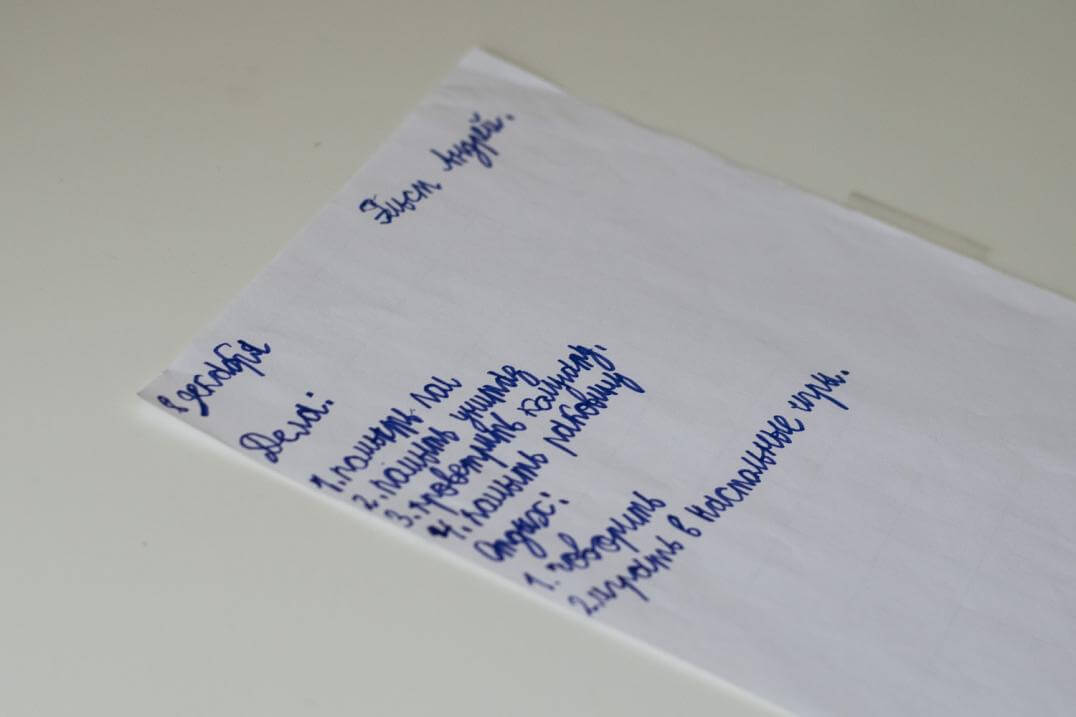 Гист Андрей.
8 декабря
Дела:
1. памыть пол
2. памыть унитаз
3. праветрить комнату.
4. памыть раковину
Отдых:
1. говорить
2. играть в настальные игры.